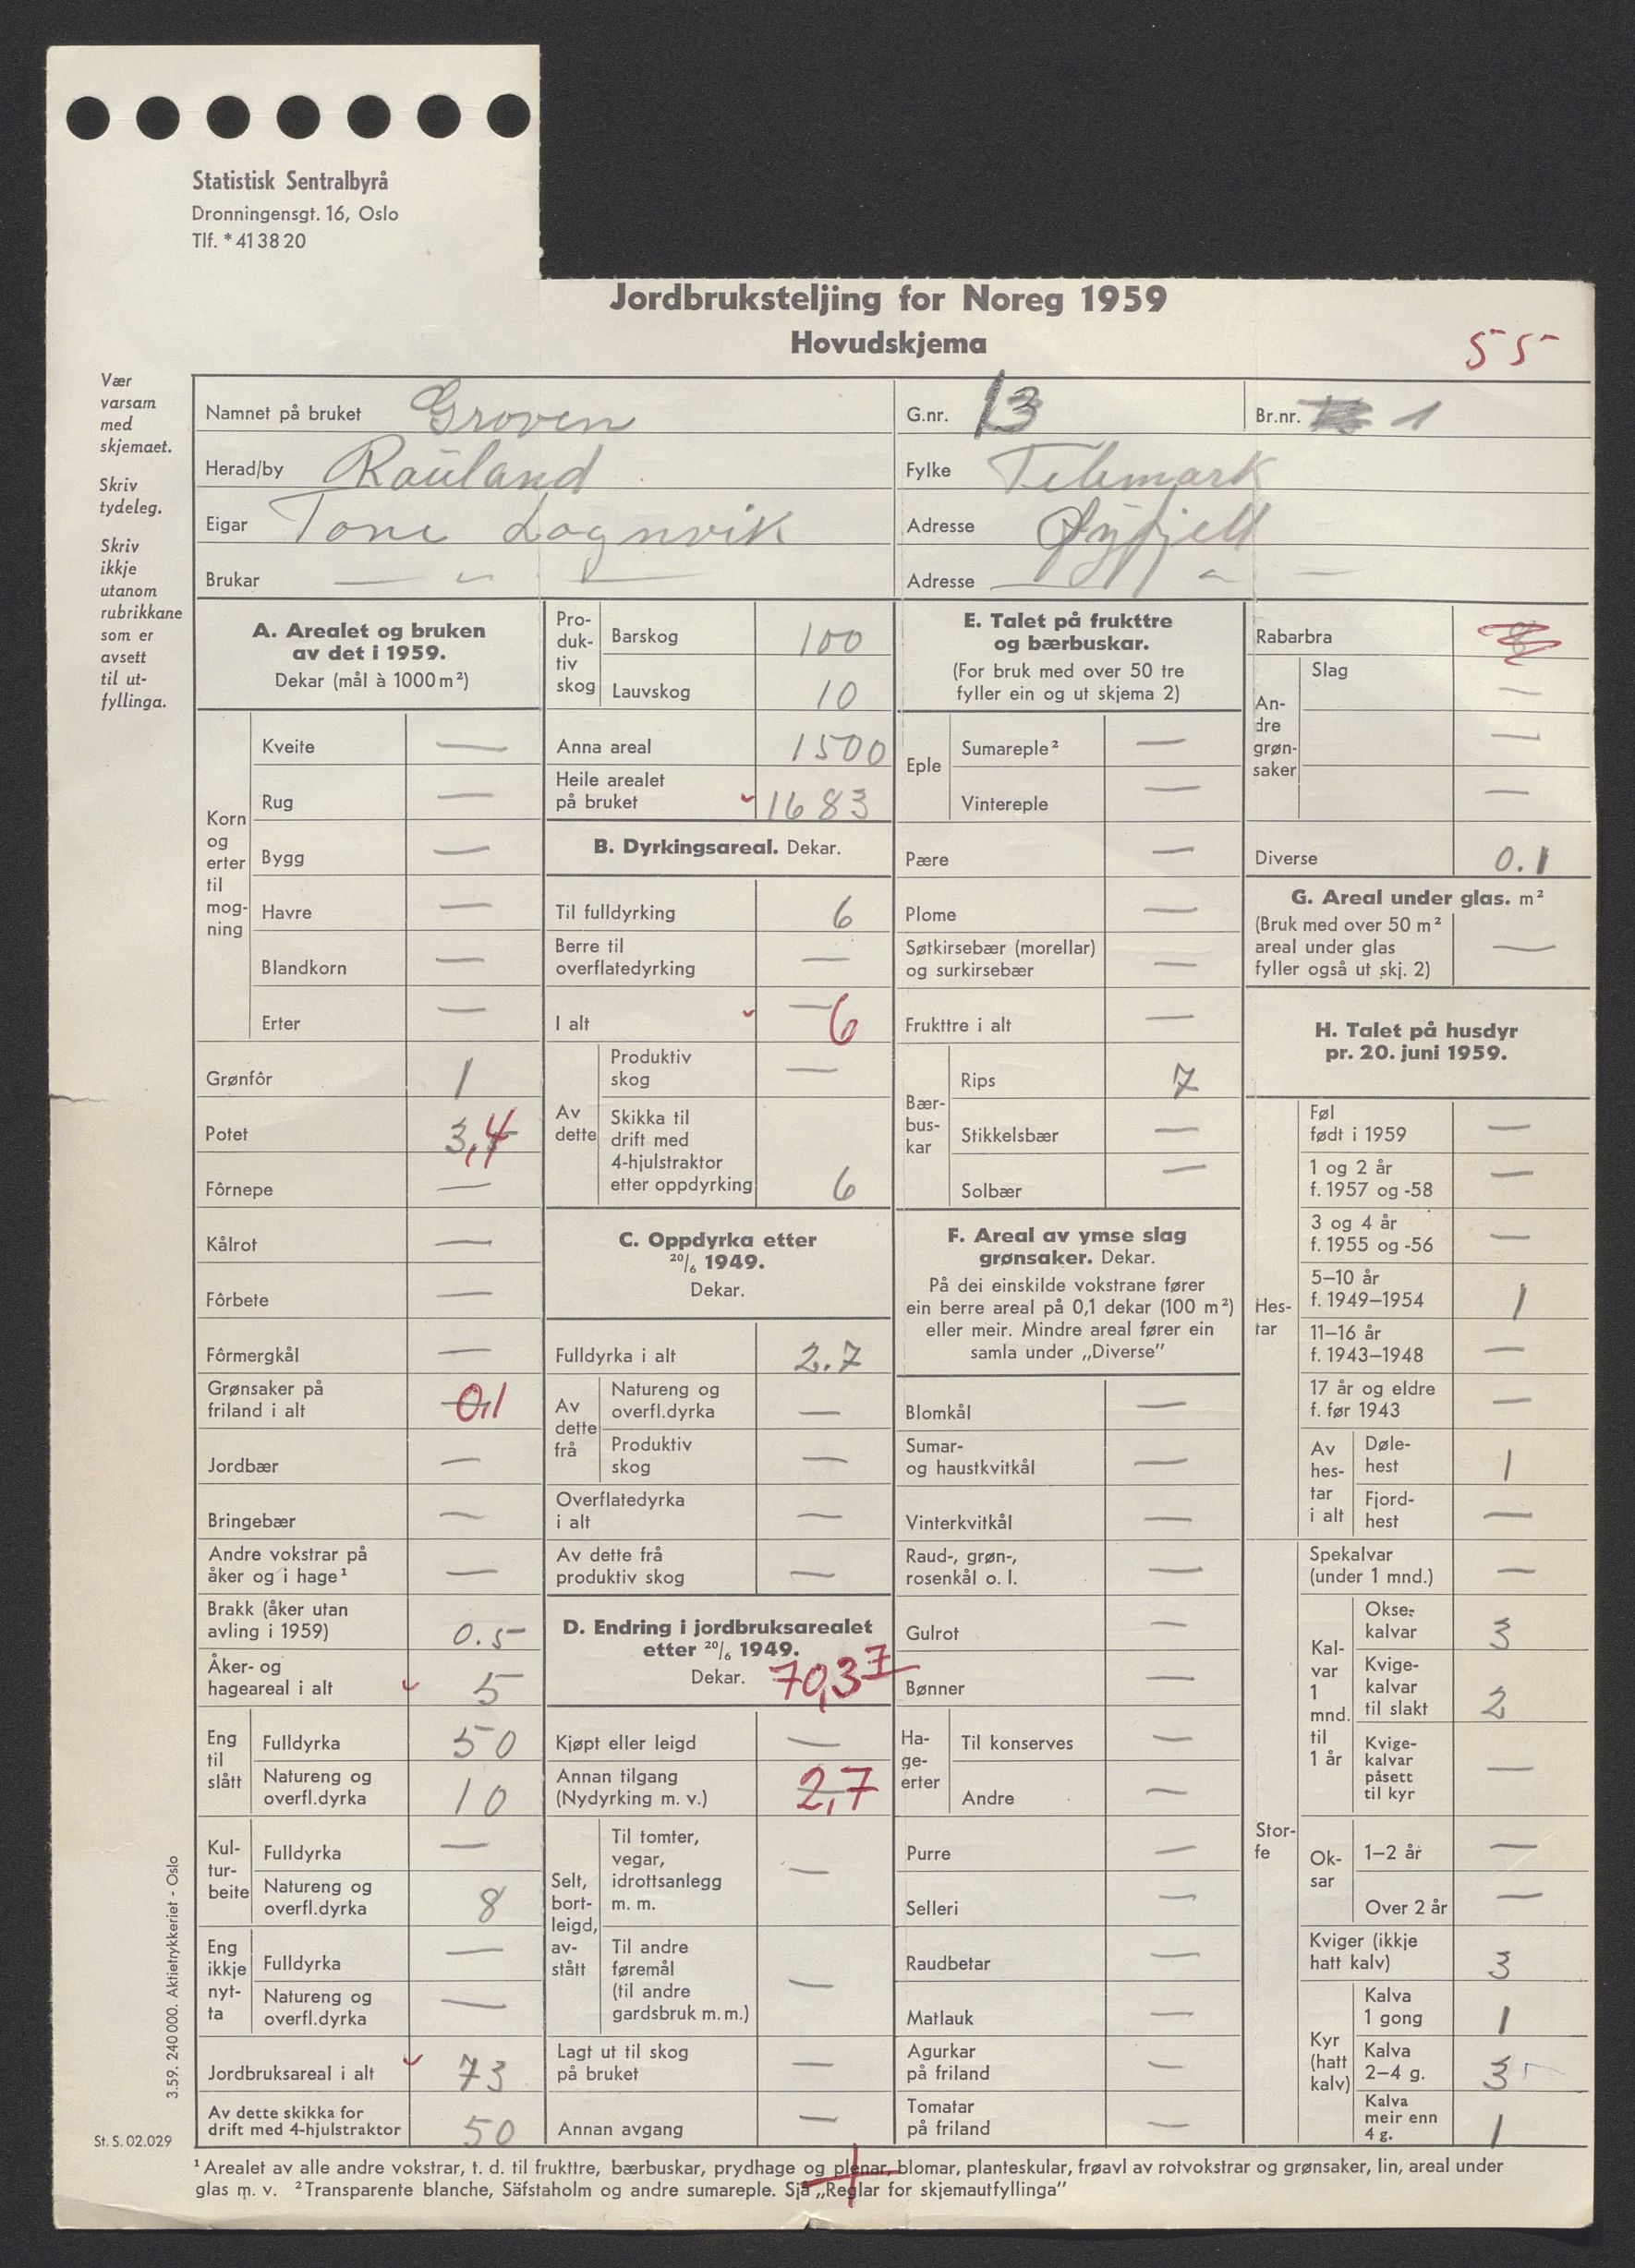 Statistisk Sentralbyrå
Dronningensgt. 16, Oslo
Tlf. * 41 38 20
Jordbruksteljing for Noreg 1959
Hovudskjema
55
Vær
varsam
med
skjemaet.
Skriv
tydeleg.
Skriv
ikkje
utanom
rubrikkane
som er
avsett
til ut-
fyllinga.
Namnet på bruket Groven G.nr. 13 Br.nr. 1
Herad/by Rauland Fylke Telemark
Eigar Tone Lognvik Adresse Øyfjell
Brukar — " — Adresse — " —
A. Arealet og bruken
av det i 1959.
Dekar (mål à 1000 m²)
Korn
og
erter
til
mog-
ning
Kveite —
Rug —
Bygg —
Havre —
Blandkorn —
Erter —
Grønfôr 1
Potet 3,4
Fôrnepe —
Kålrot —
Fôrbete —
Fôrmergkål —
Grønsaker på
friland i alt 0,1
Jordbær —
Bringebær —
Andre vokstrar på
åker og i hage¹ —
Brakk (åker utan
avling i 1959) 0.5
Åker- og
hageareal i alt 5
Eng
til
slått
Fulldyrka 50
Natureng og
overfl.dyrka 10
Kul-
tur-
beite
Fulldyrka —
Natureng og
overfl.dyrka 8
Eng
ikkje
nyt-
ta
Fulldyrka —
Natureng og
overfl.dyrka —
Jordbruksareal i alt 73
Av dette skikka for
drift med 4-hjulstraktor 50
Pro-
duk-
tiv
skog
Barskog 100
Lauvskog 10
Anna areal 1500
Heile arealet
på bruket 1683
B. Dyrkingsareal. Dekar.
Til fulldyrking 6
Berre til
overflatedyrking —
I alt — 6
Av
dette
Produktiv
skog —
Skikka til
drift med
4-hjulstraktor
etter oppdyrking 6
C. Oppdyrka etter
20/6 1949.
Dekar.
Fulldyrka i alt 2.7
Av
dette
frå
Natureng og
overfl.dyrka —
Produktiv
skog —
Overflatedyrka
i alt —
Av dette frå
produktiv skog —
D. Endring i jordbruksarealet
etter 20/6 1949.
Dekar. 70,37
Kjøpt eller leigd —
Annan tilgang
(Nydyrking m. v.) 2,7
Selt,
bort-
leigd,
av-
stått
Til tomter,
vegar,
idrottsanlegg
m. m. —
Til andre
føremål
(til andre
gardsbruk m. m.) —
Lagt ut til skog
på bruket —
Annan avgang —
E. Talet på frukttre
og bærbuskar.
(For bruk med over 50 tre
fyller ein og ut skjema 2)
Eple
Sumareple² —
Vintereple —
Pære —
Plome —
Søtkirsebær (morellar)
og surkirsebær —
Frukttre i alt —
Bær-
bus-
kar
Rips 7
Stikkelsbær —
Solbær —
F. Areal av ymse slag
grønsaker. Dekar.
På dei einskilde vokstrane fører
ein berre areal på 0,1 dekar (100 m²)
eller meir. Mindre areal fører ein
samla under „Diverse”
Blomkål —
Sumar-
og haustkvitkål —
Vinterkvitkål —
Raud-, grøn-,
rosenkål o. l. —
Gulrot —
Bønner —
Ha-
ge-
erter
Til konserves —
Andre —
Purre —
Selleri —
Raudbetar —
Matlauk —
Agurkar
på friland —
Tomatar
på friland —
Rabarbra
An-
dre
grøn-
saker
Slag —
—
—
Diverse 0.1
G. Areal under glas. m²
(Bruk med over 50 m²
areal under glas
fyller også ut skj. 2) —
H. Talet på husdyr
pr. 20. juni 1959.
Hes-
tar
Føl
født i 1959 —
1 og 2 år
f. 1957 og -58 —
3 og 4 år
f. 1955 og -56 —
5–10 år
f. 1949–1954 1
11–16 år
f. 1943–1948 —
17 år og eldre
f. før 1943 —
Av
hes-
tar
i alt
Døle-
hest 1
Fjord-
hest —
Stor-
fe
Spekalvar
(under 1 mnd.) —
Kal-
var
1
mnd.
til
1 år
Okse-
kalvar 3
Kvige-
kalvar
til slakt 2
Kvige-
kalvar
påsett
til kyr —
Ok-
sar
1–2 år —
Over 2 år —
Kviger (ikkje
hatt kalv) 3
Kyr
(hatt
kalv)
Kalva
1 gong 1
Kalva
2–4 g. 3
Kalva
meir enn
4 g. 1
3.59. 240 000. Aktietrykkeriet - Oslo
St. S. 02.029
¹ Arealet av alle andre vokstrar, t. d. til frukttre, bærbuskar, prydhage og plenar, blomar, planteskular, frøavl av rotvokstrar og grønsaker, lin, areal under
glas m. v. ² Transparente blanche, Säfstaholm og andre sumareple. Sjå „Reglar for skjemautfyllinga”